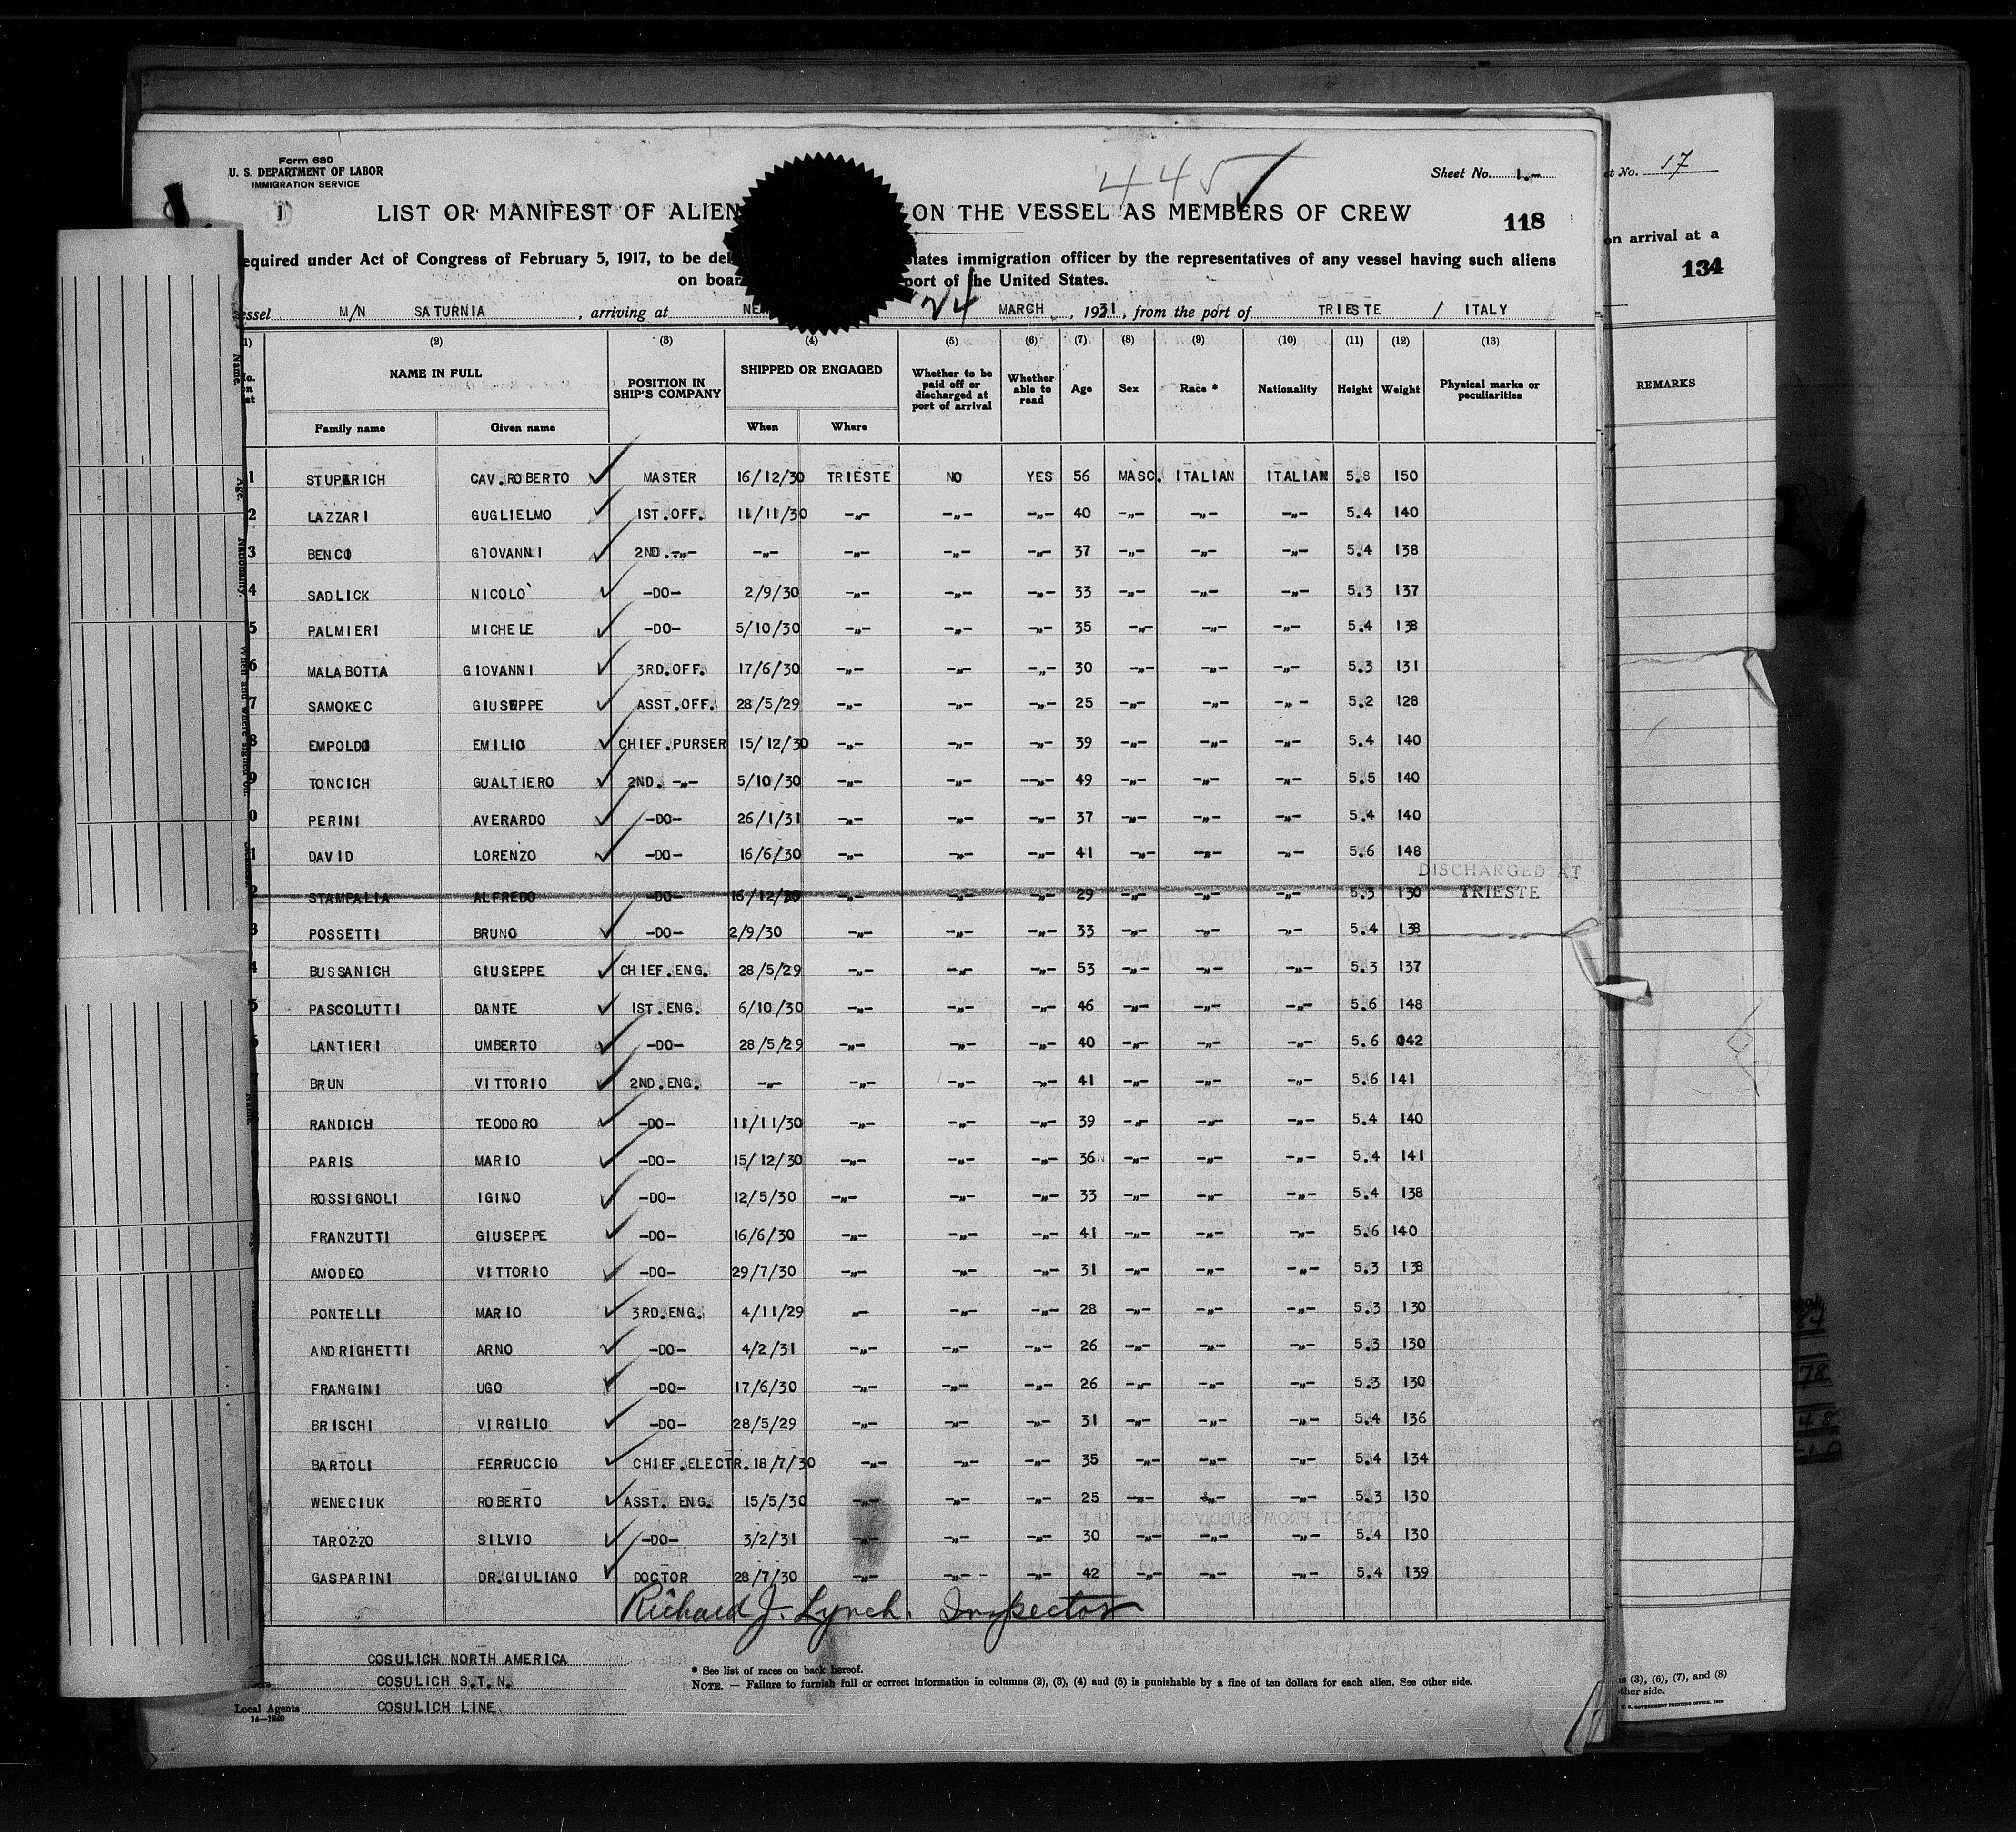 Form 680
U. S. DEPARTMENT OF LABOR
IMMIGRATION SERVICE
445
Sheet No. 1.-
LIST OR MANIFEST OF ALIEN ON THE VESSEL AS MEMBERS OF CREW
118
equired under Act of Congress of February 5, 1917, to be del tates immigration officer by the representatives of any vessel having such aliens
on boar port of the United States.
essel M/N SATURNIA, arriving at NE 24 MARCH, 1931, from the port of TRIESTE / ITALY
(1) (2) (3) (4) (5) (6) (7) (8) (9) (10) (11) (12) (13)
NAME IN FULL POSITION IN SHIP'S COMPANY SHIPPED OR ENGAGED Whether to be paid off or discharged at port of arrival Whether able to read Age Sex Race * Nationality Height Weight Physical marks or peculiarities
Family name Given name When Where
1 STUPARICH CAV.ROBERTO MASTER 16/12/30 TRIESTE NO YES 56 MASC. ITALIAN ITALIAN 5.8 150
2 LAZZARI GUGLIELMO 1ST.OFF. 11/11/30 -"- -"- -"- 40 -"- -"- -"- 5.4 140
3 BENCI GIOVANNI 2ND.-"- -"- -"- -"- -"- 37 -"- -"- -"- 5.4 138
4 SADLICK NICOLO` -DO- 2/9/30 -"- -"- -"- 33 -"- -"- -"- 5.3 137
5 PALMIERI MICHELE -DO- 5/10/30 -"- -"- -"- 35 -"- -"- -"- 5.4 138
6 MALABOTTA GIOVANNI 3RD.OFF. 17/6/30 -"- -"- -"- 30 -"- -"- -"- 5.3 131
7 SAMOKEC GIUSEPPE ASST.OFF. 28/5/29 -"- -"- -"- 25 -"- -"- -"- 5.2 128
8 EMPOLDI EMILIO CHIEF.PURSER 15/12/30 -"- -"- -"- 39 -"- -"- -"- 5.4 140
9 TONCICH GUALTIERO 2ND. -"- 5/10/30 -"- -"- -"- 49 -"- -"- -"- 5.5 140
0 PERINI AVERARDO -DO- 26/1/31 -"- -"- -"- 37 -"- -"- -"- 5.4 140
1 DAVID LORENZO -DO- 16/6/30 -"- -"- -"- 41 -"- -"- -"- 5.6 148
2 STAMPALIA ALFREDO -DO- 16/12/ -"- -"- -"- 29 -"- -"- -"- 5.3 130 DISCHARGED AT TRIESTE
3 POSSETTI BRUNO -DO- 2/9/30 -"- -"- -"- 33 -"- -"- -"- 5.4 138
4 BUSSANICH GIUSEPPE CHIEF.ENG. 28/5/29 -"- -"- -"- 53 -"- -"- -"- 5.3 137
5 PASCOLUTTI DANTE 1ST.ENG. 6/10/30 -"- -"- -"- 46 -"- -"- -"- 5.6 148
LANTIERI UMBERTO -DO- 28/5/29 -"- -"- -"- 40 -"- -"- -"- 5.6 042
BRUN VITTORIO 2ND.ENG. -"- -"- -"- -"- 41 -"- -"- -"- 5.6 141
RANDICH TEODORO -DO- 11/11/30 -"- -"- -"- 39 -"- -"- -"- 5.4 140
PARIS MARIO -DO- 15/12/30 -"- -"- -"- 36 -"- -"- -"- 5.4 141
ROSSIGNOLI IGINO -DO- 12/5/30 -"- -"- -"- 33 -"- -"- -"- 5.4 138
FRANZUTTI GIUSEPPE -DO- 16/6/30 -"- -"- -"- 41 -"- -"- -"- 5.6 140
AMODEO VITTORIO -DO- 29/7/30 -"- -"- -"- 31 -"- -"- -"- 5.3 138
PONTELLI MARIO 3RD.ENG. 4/11/29 "- -"- -"- 28 -"- -"- -"- 5.3 130
ANDRIGHETTI ARNO -DO- 4/2/31 -"- -"- -"- 26 -"- -"- -"- 5.3 130
FRANGINI UGO -DO- 17/6/30 -"- -"- -"- 26 -"- -"- -"- 5.3 130
BRISCHI VIRGILIO -DO- 28/5/29 -"- -"- -"- 31 -"- -"- -"- 5.4 136
BARTOLI FERRUCCIO CHIEF.ELECTR. 18/7/30 -"- -"- -"- 35 -"- -"- -"- 5.4 134
WENECIUK ROBERTO ASST. ENG. 15/5/30 -"- -"- -"- 25 -"- -"- -"- 5.3 130
TAROZZO SILVIO -DO- 3/2/31 -"- -"- -"- 30 -"- -"- -"- 5.4 130
GASPARINI DR.GIULIANO DOCTOR 28/7/30 -"- -"- -"- 42 -"- -"- -"- 5.4 139
Richard J. Lynch. Inspector
COSULICH NORTH AMERICA
COSULICH S.T.N.
Local Agents COSULICH LINE.
14-1240
* See list of races on back hereof.
NOTE. — Failure to furnish full or correct information in columns (2), (3), (4) and (5) is punishable by a fine of ten dollars for each alien. See other side.
et No. 17
on arrival at a
134
REMARKS
(3), (6), (7), and (8)
ther side.
U. S. GOVERNMENT PRINTING OFFICE